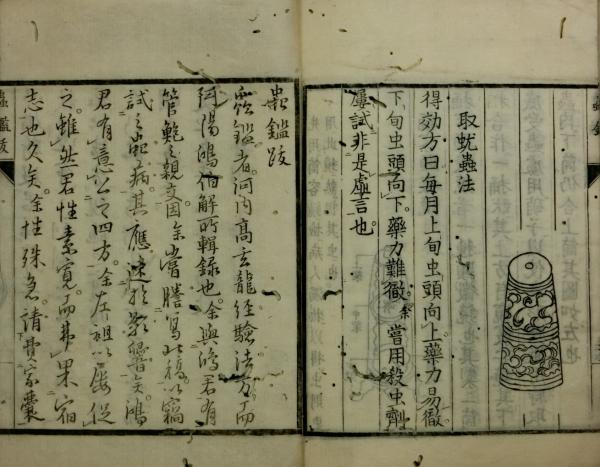 取蚘蟲法
得効方曰每月上旬虫頭向上藥力易徹
下旬虫頭向下藥力難徹余嘗用殺虫劑
屢試非是虛言也
蟲鑑跋
蟲鑑者河內高玄龍経驗法方而
阿陽鴻伯解所輯錄也余與鴻君有
管鮑之親交因余嘗謄寫此稿以竊
試之蟲病其應速於影響矣鴻
君有意公之四方余左祖以屢促
之雖然君性素寬而弗果宿
志也久矣余性殊急請費家囊